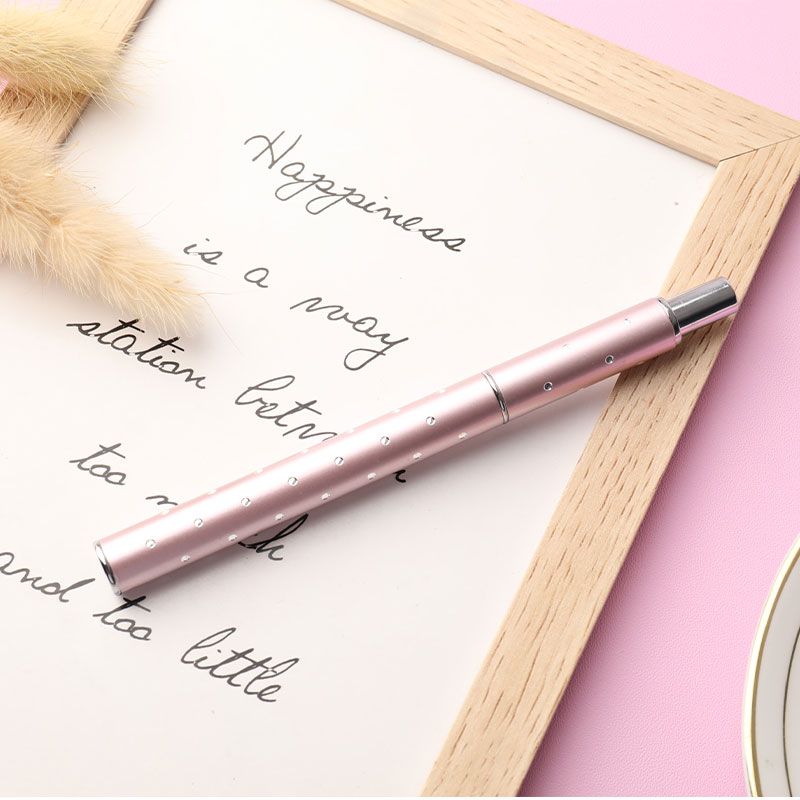 Happiness
is a way
station betw
too
and too little